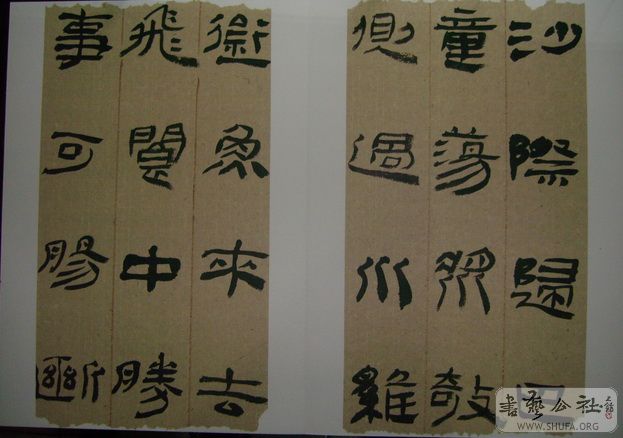 沙際歸
童蕩敧
側過川雞
銜魚來去
飛中勝
事可腸斷
書藝公社
WWW.SHUFA.ORG